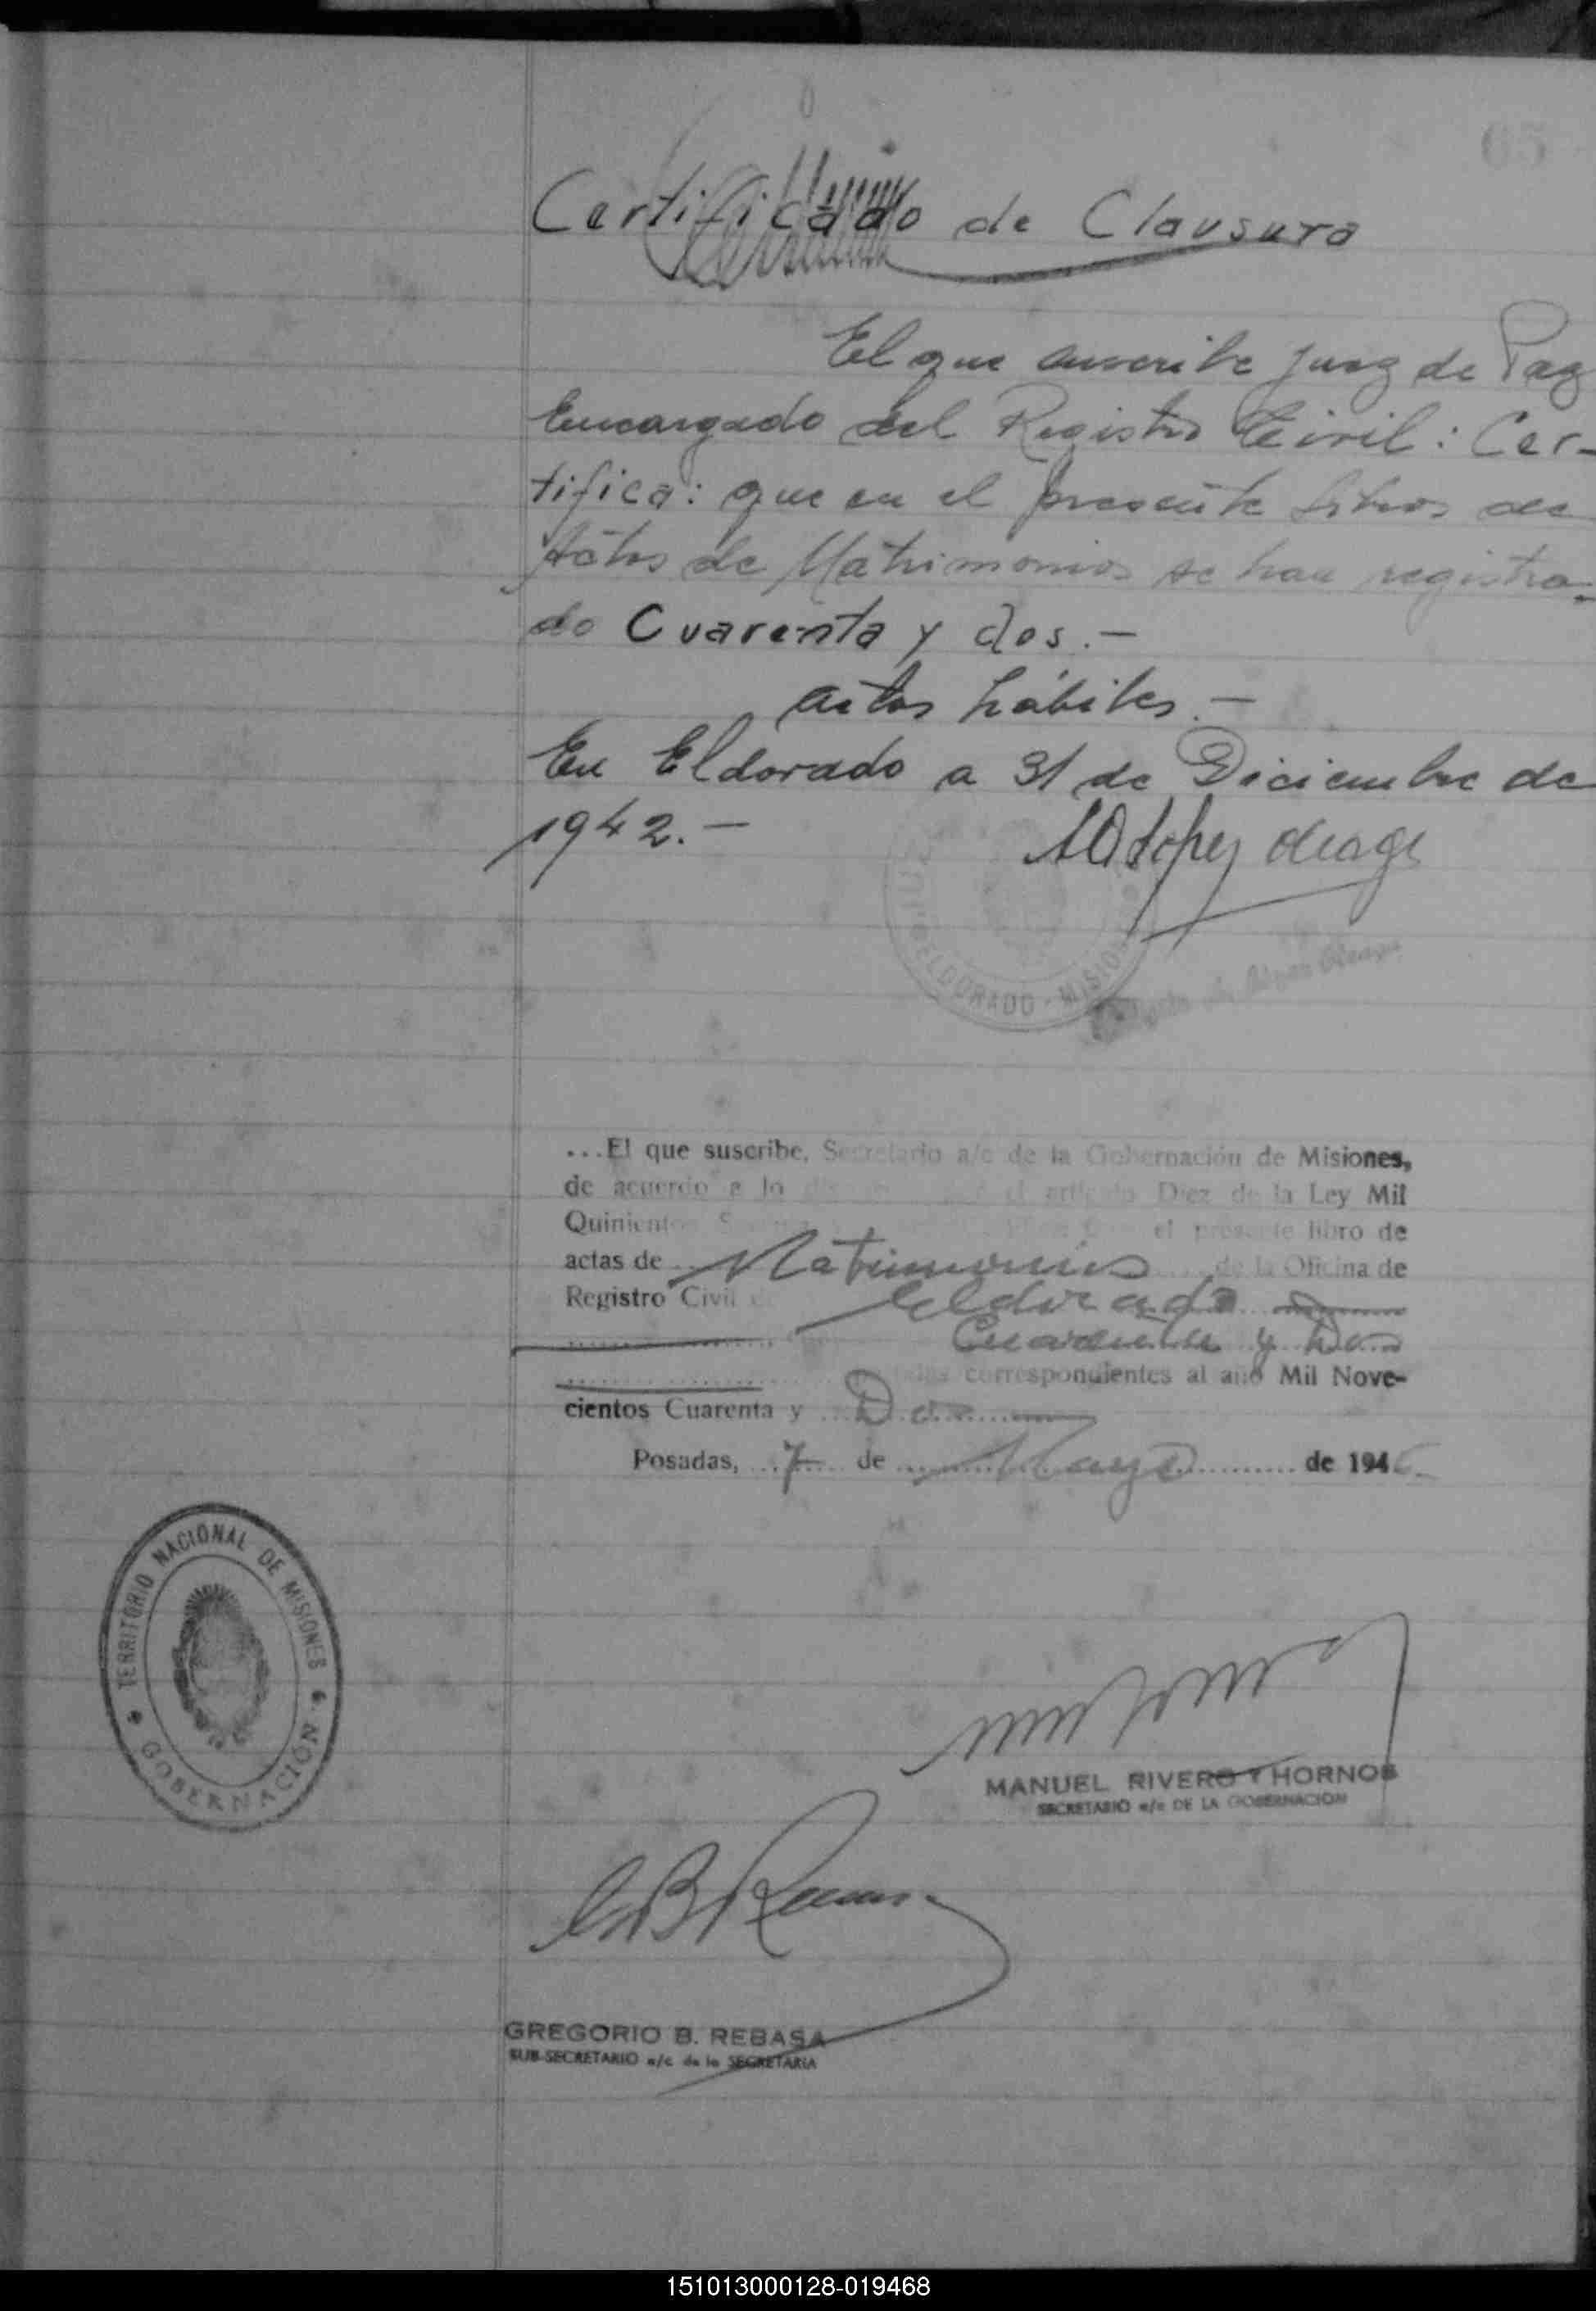 65
Certificado de Clausura
El que suscribe Juez de Paz
Encargado del Registro Civil: Cer-
tifica: que en el presente Libros de
Actos de Matrimonios se han registra-
do Cuarenta y dos.-
actos hábiles.-
En Eldorado a 31 de Diciembre de
1942.-
ELDORADO - MISIONES
...El que suscribe, Secretario a/c de la Gobernación de Misiones,
de acuerdo a lo el artículo Diez de la Ley Mil
Quinientos el presente libro de
actas de Matrimonios de la Oficina de
Registro Civil Eldorado
Cuarenta y Dos
correspondientes al año Mil Nove-
cientos Cuarenta y Dos
Posadas, 7 de Mayo de 194
TERRITORIO NACIONAL DE MISIONES
GOBERNACIÓN
MANUEL RIVERO Y HORNOS
SECRETARIO a/c DE LA GOBERNACIÓN
GREGORIO B. REBASA
SUB-SECRETARIO a/c de la SECRETARIA
151013000128-019468